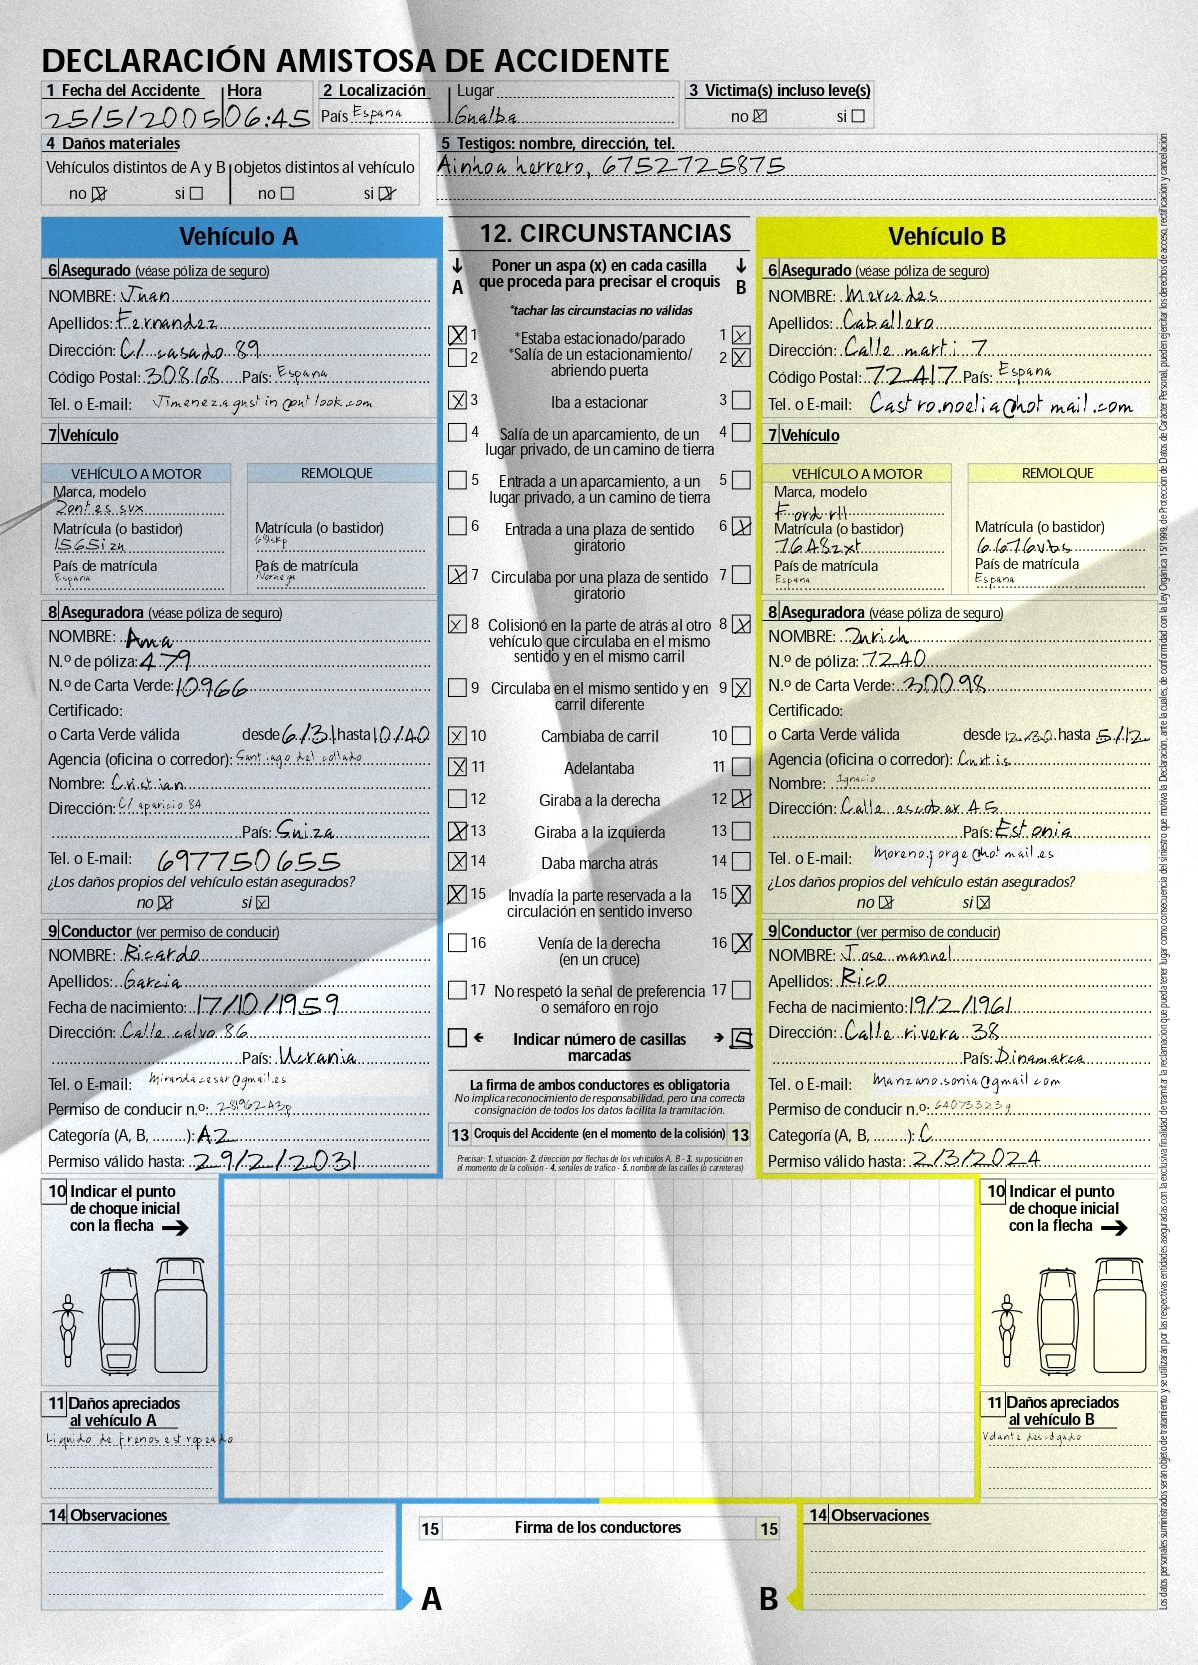 DECLARACIÓN AMISTOSA DE ACCIDENTE
1 Fecha del Accidente Hora 2 Localización Lugar 3 Victima(s) incluso leve(s)
25/5/2005 06:45 País España Gualba no si
4 Daños materiales
Vehículos distintos de A y B objetos distintos al vehículo
no si no si
5 Testigos: nombre, dirección, tel.
Ainhoa herrero, 6752725875
Vehículo A
6 Asegurado (véase póliza de seguro)
NOMBRE: Juan
Apellidos: Fernandez
Dirección: C/ casado 89
Código Postal: 30868 País: España
Tel. o E-mail: Jimenez.agustin@outlook.com
7 Vehículo
VEHÍCULO A MOTOR REMOLQUE
Marca, modelo
Zontes svx
Matrícula (o bastidor) Matrícula (o bastidor)
1565izn
País de matrícula País de matrícula
España Noruega
8 Aseguradora (véase póliza de seguro)
NOMBRE: Ama
N.º de póliza: 479
N.º de Carta Verde: 10966
Certificado:
o Carta Verde válida desde 6/31 hasta 10/40
Agencia (oficina o corredor): Santiago del collado
Nombre: Cristian
Dirección: C/ aparicio 84
País: Suiza
Tel. o E-mail: 697750655
¿Los daños propios del vehículo están asegurados?
no si
9 Conductor (ver permiso de conducir)
NOMBRE: Ricardo
Apellidos: Garcia
Fecha de nacimiento: 17/10/1959
Dirección: Calle calvo 86
País: Ucrania
Tel. o E-mail: Mirandacesar@gmail.es
Permiso de conducir n.º: 28196243p
Categoría (A, B, ........): A2
Permiso válido hasta: 29/2/2031
12. CIRCUNSTANCIAS
A Poner un aspa (x) en cada casilla que proceda para precisar el croquis B
*tachar las circunstacias no válidas
1 *Estaba estacionado/parado 1
2 *Salía de un estacionamiento/ 2
abriendo puerta
3 Iba a estacionar 3
4 Salía de un aparcamiento, de un 4
lugar privado, de un camino de tierra
5 Entrada a un aparcamiento, a un 5
lugar privado, a un camino de tierra
6 Entrada a una plaza de sentido 6
giratorio
7 Circulaba por una plaza de sentido 7
giratorio
8 Colisionó en la parte de atrás al otro 8
vehículo que circulaba en el mismo
sentido y en el mismo carril
9 Circulaba en el mismo sentido y en 9
carril diferente
10 Cambiaba de carril 10
11 Adelantaba 11
12 Giraba a la derecha 12
13 Giraba a la izquierda 13
14 Daba marcha atrás 14
15 Invadía la parte reservada a la 15
circulación en sentido inverso
16 Venía de la derecha 16
(en un cruce)
17 No respetó la señal de preferencia 17
o semáforo en rojo
Indicar número de casillas 5
marcadas
La firma de ambos conductores es obligatoria
No implica reconocimiento de responsabilidad, pero una correcta
consignación de todos los datos facilita la tramitación.
13 Croquis del Accidente (en el momento de la colisión) 13
Precisar: 1. situación- 2. dirección por flechas de los vehículos A, B - 3. su posición en
el momento de la colisión - 4. señales de tráfico - 5. nombre de las calles (o carreteras)
Vehículo B
6 Asegurado (véase póliza de seguro)
NOMBRE: Mercedes
Apellidos: Caballero
Dirección: Calle marti 7
Código Postal: 72417 País: España
Tel. o E-mail: Castro.noelia@hotmail.com
7 Vehículo
VEHÍCULO A MOTOR REMOLQUE
Marca, modelo
Ford r11
Matrícula (o bastidor) Matrícula (o bastidor)
7648zxt 6676vbs
País de matrícula País de matrícula
España España
8 Aseguradora (véase póliza de seguro)
NOMBRE: Zurich
N.º de póliza: 7240
N.º de Carta Verde: 30098
Certificado:
o Carta Verde válida desde 12/30 hasta 5/12
Agencia (oficina o corredor): Curtis
Nombre: Ignacio
Dirección: Calle escobar 45
País: Estonia
Tel. o E-mail: Moreno.jorge@hotmail.es
¿Los daños propios del vehículo están asegurados?
no si
9 Conductor (ver permiso de conducir)
NOMBRE: Jose manuel
Apellidos: Rico
Fecha de nacimiento: 19/2/1961
Dirección: Calle rivera 38
País: Dinamarca
Tel. o E-mail: Manzano.sonia@gmail.com
Permiso de conducir n.º: 64073323g
Categoría (A, B, ........): C
Permiso válido hasta: 2/3/2024
10 Indicar el punto
de choque inicial
con la flecha
11 Daños apreciados
al vehículo A
Liquido de frenos estropeado
10 Indicar el punto
de choque inicial
con la flecha
11 Daños apreciados
al vehículo B
Volante descolgado
14 Observaciones
15 Firma de los conductores 15
A B
14 Observaciones